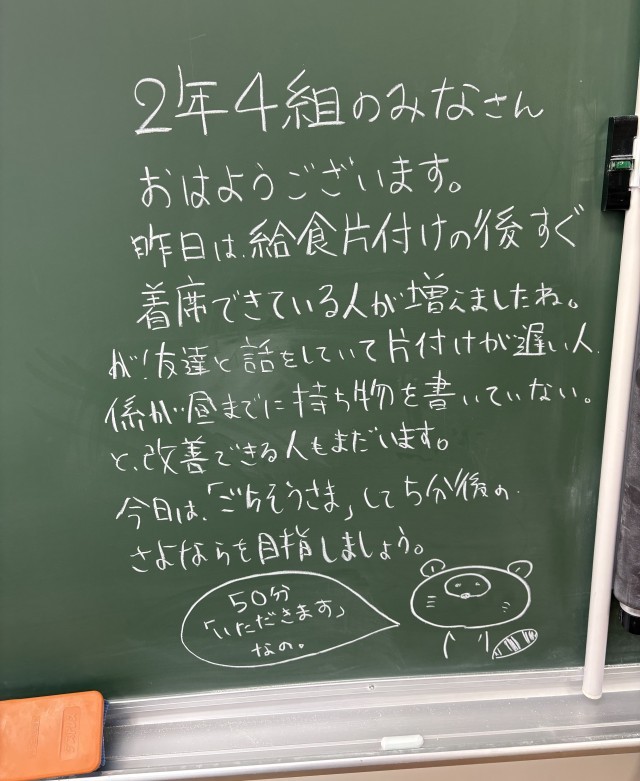 2年4組のみなさん
おはようございます。
昨日は、給食片付けの後すぐ
着席できている人が増えましたね。
が!友達と話をしていて片付けが遅い人、
係が昼までに持ち物を書いていない。
と、改善できる人もまだいます。
今日は、「ごちそうさま」して5分後の
さよならを目指しましょう。
50分
「いただきます」
なの。